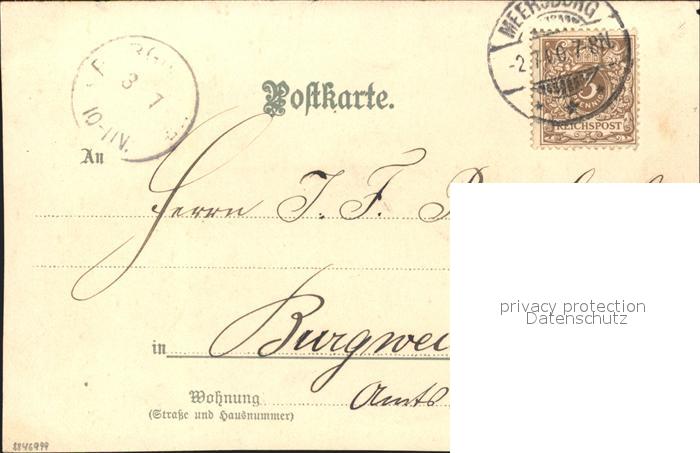 MEERSBURG
7-8N.
3
PFENNIG
REICHSPOST
3 7
10-11V.
Postkarte.
An
Herrn J. F.
in Burgwei
Wohnung Amts
(Straße und Hausnummer)
privacy protection
Datenschutz
8846999